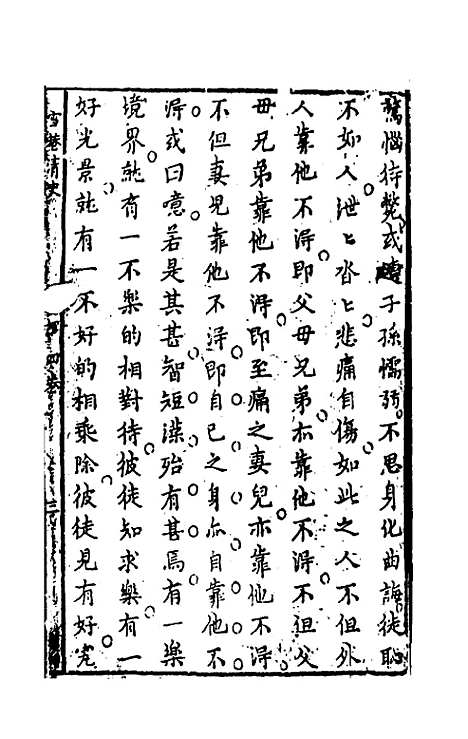 惱待斃或子孫懦弱不思身化曲誨徒恥
不如人泄泄沓沓悲痛自傷如此之人不但外
人靠他不得即父母兄弟亦靠他不得不但父
母兄弟靠他不得即至痛之妻兒亦靠他不得
不但妻兒靠他不得即自己之身亦自靠他不
得或曰噫若是其甚智短深殆有甚焉有一樂
境界就有一不樂的相對待彼徒知求樂有一
好光景就有一不好的相乘除彼徒見有好光
雪菴清史